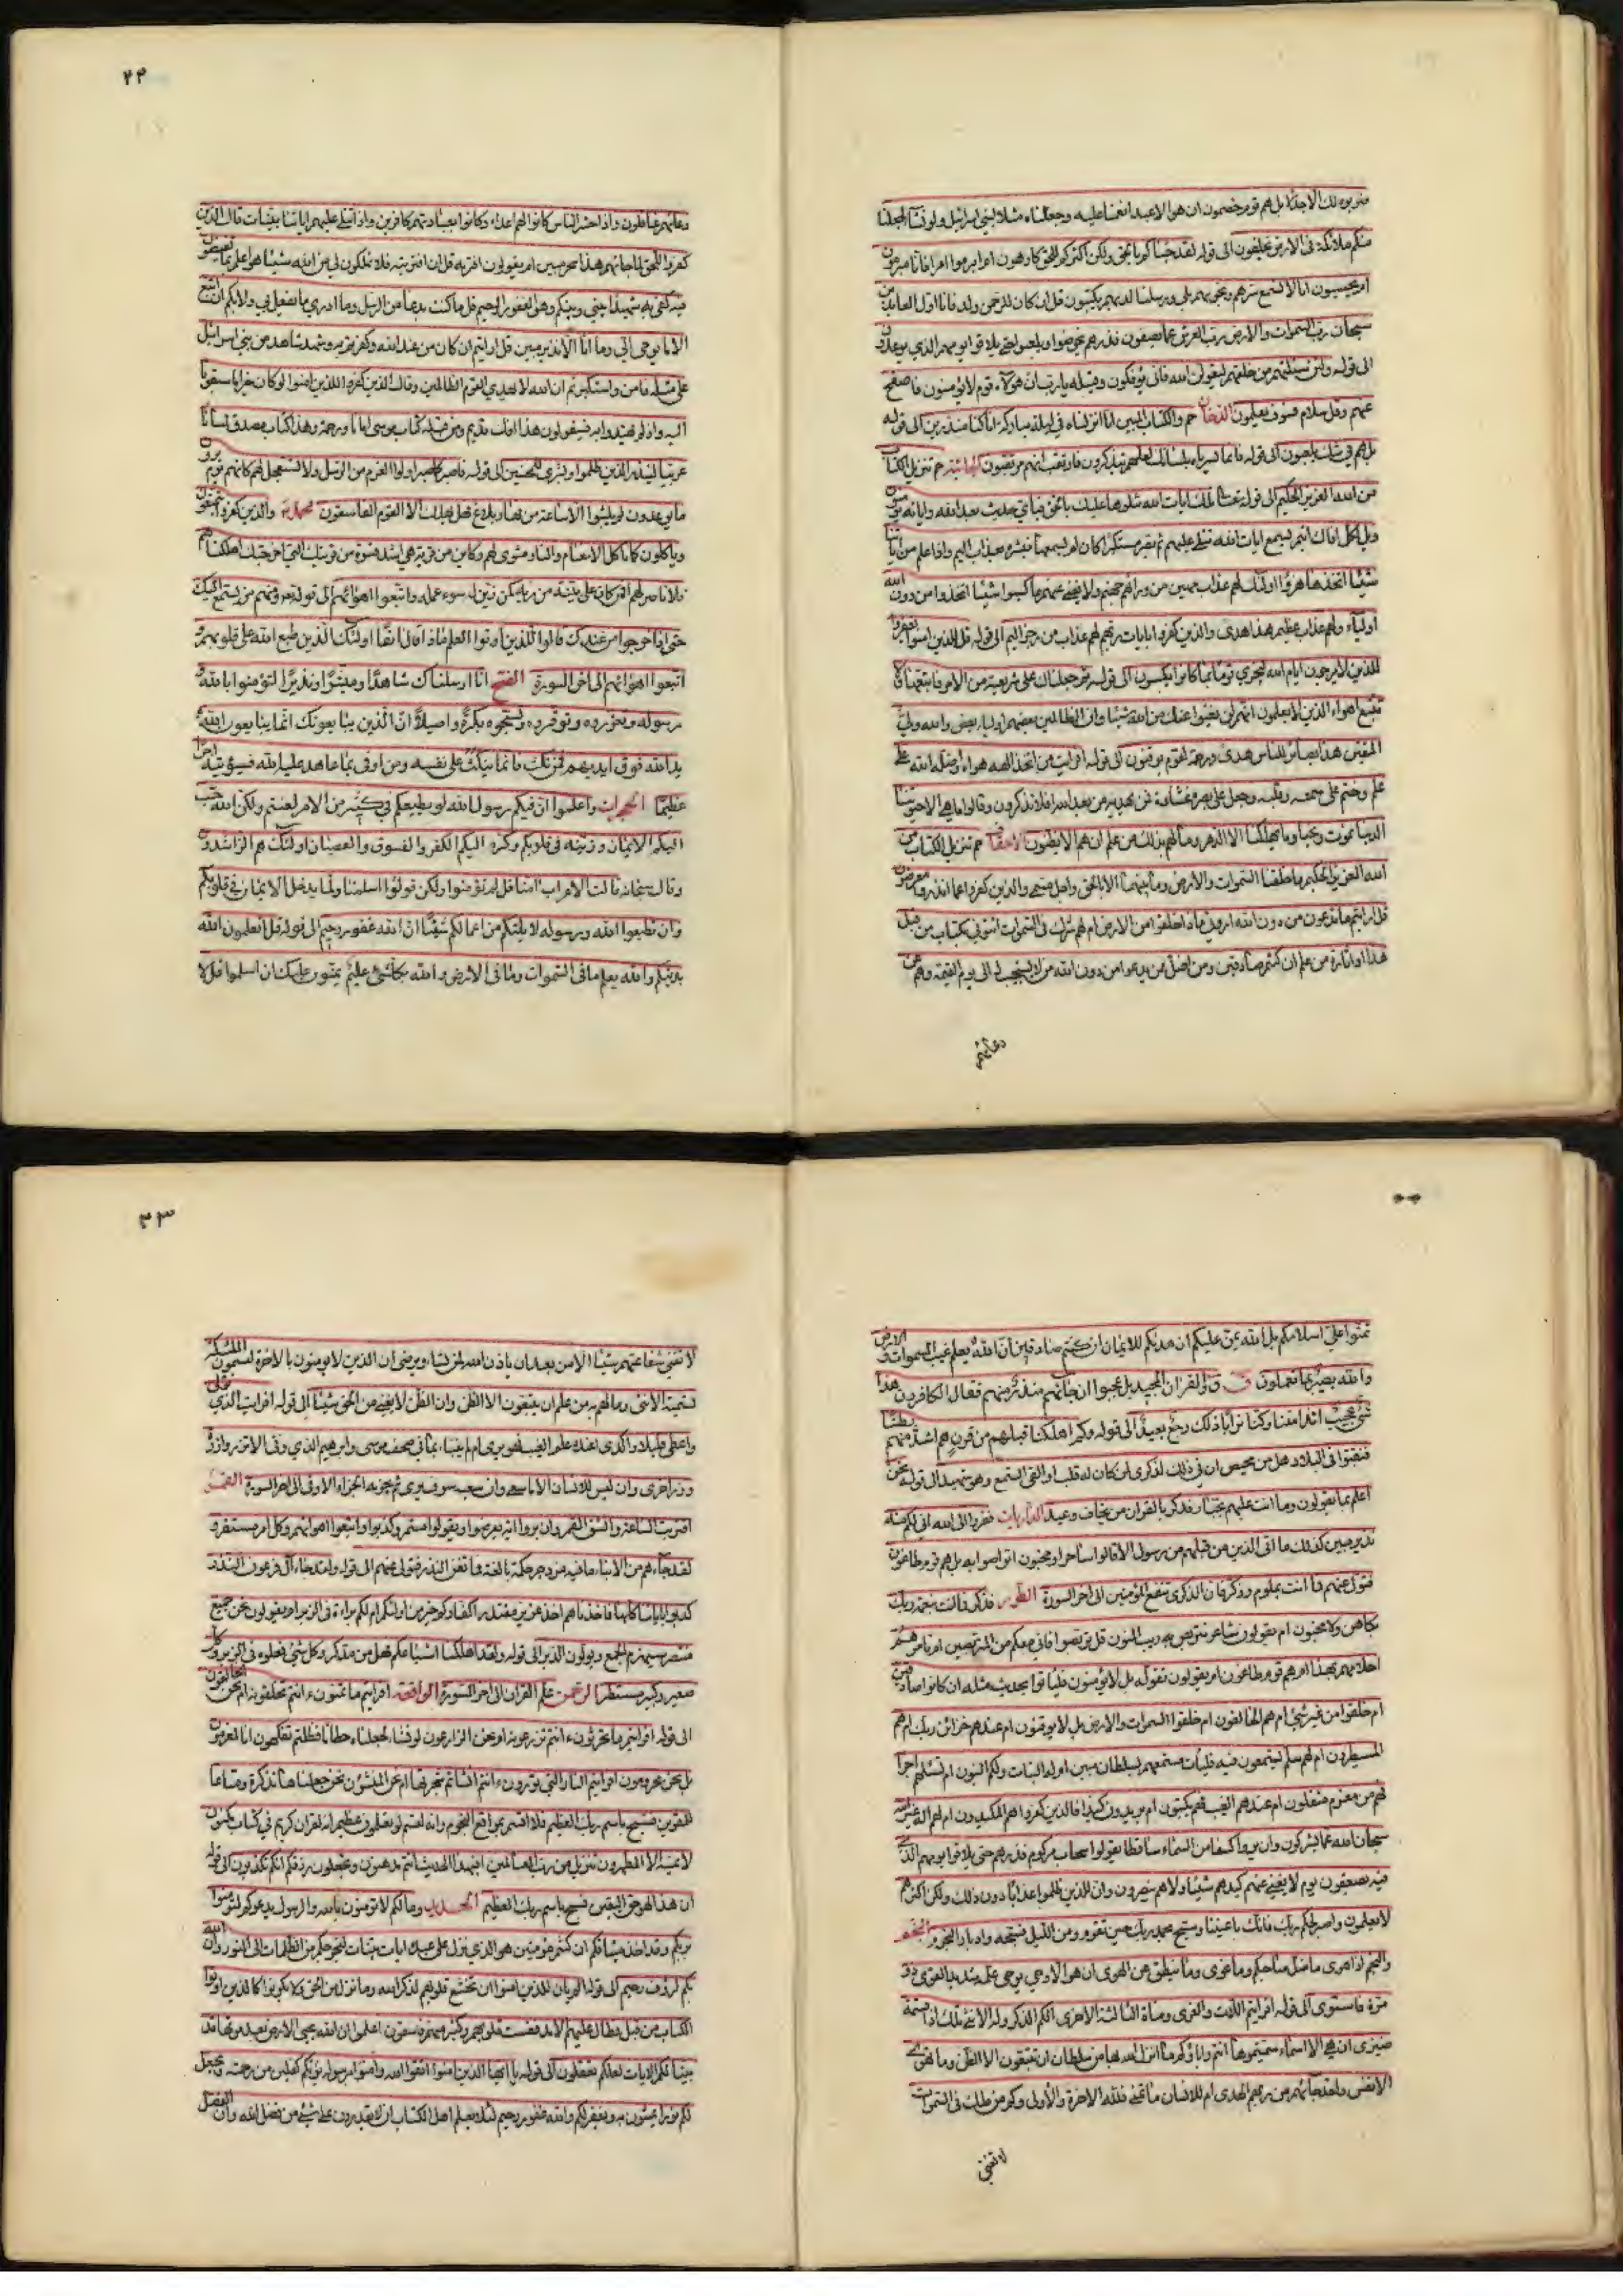 ضربوه لك الا جدلا بل هم قوم خصمون ان هو الا عبد انعمنا عليه وجعلناه مثلا لبني اسرائيل ولو نشاء لجعلنا
منكم ملائكة في الارض يخلفون الى قوله لقد جئناكم بالحق ولكن اكثركم للحق كارهون ام ابرموا امرا فانا مبرمون
ام يحسبون انا لا نسمع سرهم ونجويهم بلى ورسلنا لديهم يكتبون قل ان كان للرحمن ولد فانا اول العابدين
سبحان رب السموات والارض رب العرش عما يصفون فذرهم يخوضوا ويلعبوا حتى يلاقوا يومهم الذي يوعدون
الى قوله ولئن سئلتهم من خلقهم ليقولن الله فانى يؤفكون وقيله يا رب ان هؤلاء قوم لا يؤمنون فاصفح
عنهم وقل سلام فسوف يعلمون الدخان حم والكتاب المبين انا انزلناه في ليلة مباركة انا كنا منذرين الى قوله
بل هم في شك يلعبون الى قوله فانما يسرناه بلسانك لعلهم يتذكرون فارتقب انهم مرتقبون الجاثية حم تنزيل الكتاب
من الله العزيز الحكيم الى قوله تعالى تلك ايات الله نتلوها عليك بالحق فباي حديث بعد الله واياته يؤمنون
ويل لكل افاك اثيم يسمع ايات الله تتلى عليه ثم يصر مستكبرا كان لم يسمعها فبشره بعذاب اليم واذا علم من اياتنا
شيئا اتخذها هزوا اولئك لهم عذاب مهين من ورائهم جهنم ولا يغني عنهم ما كسبوا شيئا ولا ما اتخذوا من دون الله
اولياء ولهم عذاب عظيم هذا هدى والذين كفروا بايات ربهم لهم عذاب من رجز اليم الى قوله قل للذين امنوا يغفروا
للذين لا يرجون ايام الله ليجزي قوما بما كانوا يكسبون الى قوله ثم جعلناك على شريعة من الامر فاتبعها ولا
تتبع اهواء الذين لا يعلمون انهم لن يغنوا عنك من الله شيئا وان الظالمين بعضهم اولياء بعض والله ولي
المتقين هذا بصائر للناس هدى ورحمة لقوم يوقنون الى قوله افرايت من اتخذ الهه هواه واضله الله على
علم وختم على سمعه وقلبه وجعل على بصره غشاوة فمن يهديه من بعد الله افلا تذكرون وقالوا ما هي الا حيوتنا
الدنيا نموت ونحيا وما يهلكنا الا الدهر وما لهم بذلك من علم ان هم الا يظنون الاحقاف حم تنزيل الكتاب من
الله العزيز الحكيم ما خلقنا السموات والارض وما بينهما الا بالحق واجل مسمى والذين كفروا عما انذروا معرضون
قل ارايتم ما تدعون من دون الله اروني ماذا خلقوا من الارض ام لهم شرك في السموات ائتوني بكتاب من قبل
هذا او اثارة من علم ان كنتم صادقين ومن اضل ممن يدعوا من دون الله من لا يستجيب له الى يوم القيمة وهم عن
دعائهم
۲۲
دعائهم غافلون واذا حشر الناس كانوا لهم اعداء وكانوا بعبادتهم كافرين واذا تتلى عليهم اياتنا بينات قال الذين
كفروا للحق لما جاءهم هذا سحر مبين ام يقولون افتريه قل ان افتريته فلا تملكون لي من الله شيئا هو اعلم بما تفيضون
فيه كفى به شهيدا بيني وبينكم وهو الغفور الرحيم قل ما كنت بدعا من الرسل وما ادري ما يفعل بي ولا بكم ان اتبع
الا ما يوحى الي وما انا الا نذير مبين قل ارايتم ان كان من عند الله وكفرتم به وشهد شاهد من بني اسرائيل
على مثله فامن واستكبرتم ان الله لا يهدي القوم الظالمين وقال الذين كفروا للذين امنوا لو كان خيرا ما سبقونا
اليه واذ لم يهتدوا به فسيقولون هذا افك قديم ومن قبله كتاب موسى اماما ورحمة وهذا كتاب مصدق لسانا
عربيا لينذر الذين ظلموا وبشرى للمحسنين الى قوله فاصبر كما صبر اولوا العزم من الرسل ولا تستعجل لهم كانهم يوم يرون
ما يوعدون لم يلبثوا الا ساعة من نهار بلاغ فهل يهلك الا القوم الفاسقون محمد والذين كفروا يتمتعون
وياكلون كما تاكل الانعام والنار مثوى لهم وكاين من قرية هي اشد قوة من قريتك التي اخرجتك اهلكناهم
فلا ناصر لهم افمن كان على بينة من ربه كمن زين له سوء عمله واتبعوا اهوائهم الى قوله ومنهم من يستمع اليك
حتى اذا خرجوا من عندك قالوا للذين اوتوا العلم ماذا قال انفا اولئك الذين طبع الله على قلوبهم و
اتبعوا اهوائهم الى اخر السورة الفتح انا ارسلناك شاهدا ومبشرا ونذيرا لتؤمنوا بالله و
رسوله وتعزروه وتوقروه وتسبحوه بكرة واصيلا ان الذين يبايعونك انما يبايعون الله
يد الله فوق ايديهم فمن نكث فانما ينكث على نفسه ومن اوفى بما عاهد عليه الله فسيؤتيه اجرا
عظيما الحجرات واعلموا ان فيكم رسول الله لو يطيعكم في كثير من الامر لعنتم ولكن الله حبب
اليكم الايمان وزينه في قلوبكم وكره اليكم الكفر والفسوق والعصيان اولئك هم الراشدون
وقال سبحانه قالت الاعراب امنا قل لم تؤمنوا ولكن قولوا اسلمنا ولما يدخل الايمان في قلوبكم
وان تطيعوا الله ورسوله لا يلتكم من اعمالكم شيئا ان الله غفور رحيم الى قوله قل اتعلمون الله
بدينكم والله يعلم ما في السموات وما في الارض والله بكل شئ عليم يمنون عليك ان اسلموا قل لا
تمنوا علي اسلامكم بل الله يمن عليكم ان هديكم للايمان ان كنتم صادقين ان الله يعلم غيب السموات والارض
والله بصير بما تعملون ق ق والقران المجيد بل عجبوا ان جائهم منذر منهم فقال الكافرون هذا
شئ عجيب ائذا متنا وكنا ترابا ذلك رجع بعيد الى قوله وكم اهلكنا قبلهم من قرن هم اشد منهم بطشا
فنقبوا في البلاد هل من محيص ان في ذلك لذكرى لمن كان له قلب او القى السمع وهو شهيد الى قوله نحن
اعلم بما يقولون وما انت عليهم بجبار فذكر بالقران من يخاف وعيد الذاريات ففروا الى الله اني لكم منه
نذير مبين كذلك ما اتى الذين من قبلهم من رسول الا قالوا ساحر او مجنون اتواصوا به بل هم قوم طاغون
فتول عنهم فما انت بملوم وذكر فان الذكرى تنفع المؤمنين الى اخر السورة الطور فذكر فما انت بنعمة ربك
بكاهن ولا مجنون ام يقولون شاعر نتربص به ريب المنون قل تربصوا فاني معكم من المتربصين ام تامرهم
احلامهم بهذا ام هم قوم طاغون ام يقولون تقوله بل لا يؤمنون فلياتوا بحديث مثله ان كانوا صادقين
ام خلقوا من غير شئ ام هم الخالقون ام خلقوا السموات والارض بل لا يوقنون ام عندهم خزائن ربك ام هم
المسيطرون ام لهم سلم يستمعون فيه فليات مستمعهم بسلطان مبين ام له البنات ولكم البنون ام تسئلهم اجرا
فهم من مغرم مثقلون ام عندهم الغيب فهم يكتبون ام يريدون كيدا فالذين كفروا هم المكيدون ام لهم اله غير الله
سبحان الله عما يشركون وان يروا كسفا من السماء ساقطا يقولوا سحاب مركوم فذرهم حتى يلاقوا يومهم الذي
فيه يصعقون يوم لا يغني عنهم كيدهم شيئا ولا هم ينصرون وان للذين ظلموا عذابا دون ذلك ولكن اكثرهم
لا يعلمون واصبر لحكم ربك فانك باعيننا وسبح بحمد ربك حين تقوم ومن الليل فسبحه وادبار النجوم النجم
والنجم اذا هوى ما ضل صاحبكم وما غوى وما ينطق عن الهوى ان هو الا وحي يوحى علمه شديد القوى ذو
مرة فاستوى الى قوله افرايتم اللات والعزى ومناة الثالثة الاخرى الكم الذكر وله الانثى تلك اذا قسمة
ضيزى ان هي الا اسماء سميتموها انتم واباؤكم ما انزل الله بها من سلطان ان تتبعون الا الظن وما تهوى
الانفس ولقد جائهم من ربهم الهدى ام للانسان ما تمنى فلله الاخرة والاولى وكم من ملك في السموات
لا تغني
۲۳
لا تغني شفاعتهم شيئا الا من بعد ان ياذن الله لمن يشاء ويرضى ان الذين لا يؤمنون بالاخرة ليسمون الملائكة
تسمية الانثى وما لهم به من علم ان يتبعون الا الظن وان الظن لا يغني من الحق شيئا الى قوله افرايت الذي تولى
واعطى قليلا واكدى اعنده علم الغيب فهو يرى ام لم ينبا بما في صحف موسى وابرهيم الذي وفى الا تزر وازرة
وزر اخرى وان ليس للانسان الا ما سعى وان سعيه سوف يرى ثم يجزيه الجزاء الاوفى الى اخر السورة القمر
اقتربت الساعة وانشق القمر وان يروا اية يعرضوا ويقولوا سحر مستمر وكذبوا واتبعوا اهوائهم وكل امر مستقر و
لقد جاءهم من الانباء ما فيه مزدجر حكمة بالغة فما تغن النذر فتول عنهم الى قوله ولقد جاء ال فرعون النذر
كذبوا باياتنا كلها فاخذناهم اخذ عزيز مقتدر اكفاركم خير من اولئكم ام لكم براءة في الزبر ام يقولون نحن جميع
منتصر سيهزم الجمع ويولون الدبر الى قوله ولقد اهلكنا اشياعكم فهل من مدكر وكل شئ فعلوه في الزبر وكل
صغير وكبير مستطر الرحمن علم القران الى اخر السورة الواقعة افرايتم ما تمنون ءانتم تخلقونه ام نحن الخالقون
الى قوله افرايتم ما تحرثون ءانتم تزرعونه ام نحن الزارعون لو نشاء لجعلناه حطاما فظلتم تفكهون انا لمغرمون
بل نحن محرومون افرايتم النار التي تورون ءانتم انشاتم شجرتها ام نحن المنشؤن نحن جعلناها تذكرة ومتاعا
للمقوين فسبح باسم ربك العظيم فلا اقسم بمواقع النجوم وانه لقسم لو تعلمون عظيم انه لقران كريم في كتاب مكنون
لا يمسه الا المطهرون تنزيل من رب العالمين افبهذا الحديث انتم مدهنون وتجعلون رزقكم انكم تكذبون الى قوله
ان هذا لهو حق اليقين فسبح باسم ربك العظيم الحديد وما لكم لا تؤمنون بالله والرسول يدعوكم لتؤمنوا
بربكم وقد اخذ ميثاقكم ان كنتم مؤمنين هو الذي ينزل على عبده ايات بينات ليخرجكم من الظلمات الى النور وان الله
بكم لرؤف رحيم الى قوله الم يان للذين امنوا ان تخشع قلوبهم لذكر الله وما نزل من الحق ولا يكونوا كالذين اوتوا
الكتاب من قبل فطال عليهم الامد فقست قلوبهم وكثير منهم فاسقون اعلموا ان الله يحيي الارض بعد موتها قد
بينا لكم الايات لعلكم تعقلون الى قوله يا ايها الذين امنوا اتقوا الله وامنوا برسوله يؤتكم كفلين من رحمته ويجعل
لكم نورا تمشون به ويغفر لكم والله غفور رحيم لئلا يعلم اهل الكتاب ان لا يقدرون على شئ من فضل الله وان الفضل